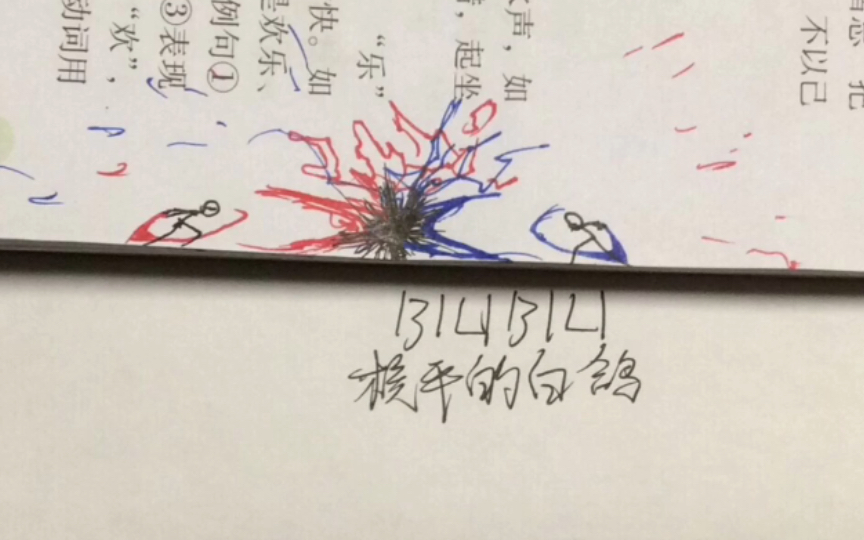 声，如
，起坐
“乐”
快。如
是欢乐、
例句①
③表现
“欢”，
动词用
不以己
BILIBILI
平的白鸽